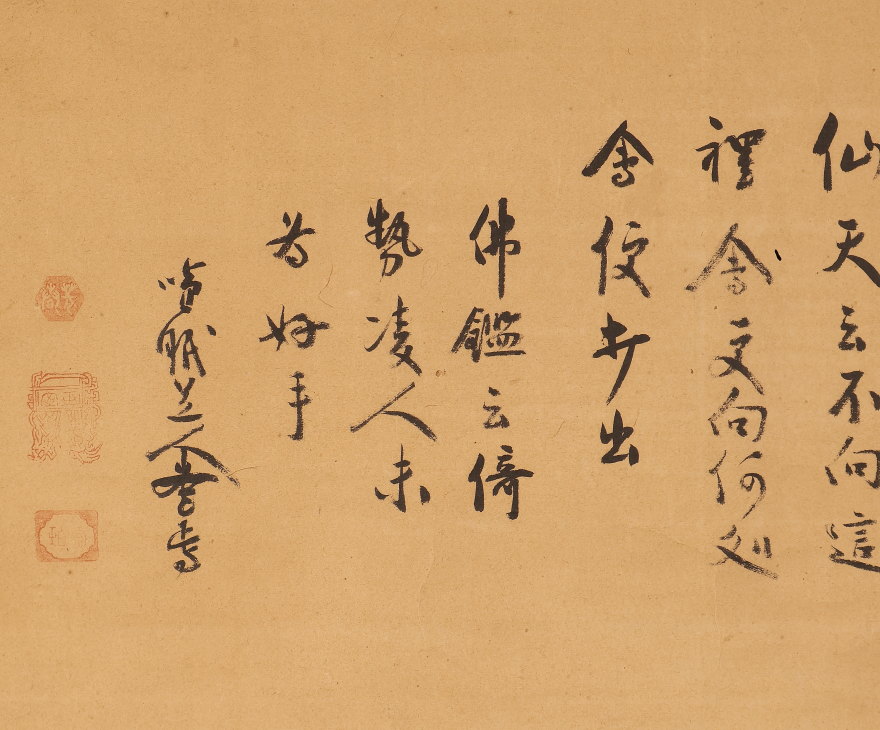 仙天云不向這
裡會更向何処
會便打出
佛鑑云倚
勢凌人未
為好手
眠 人 書